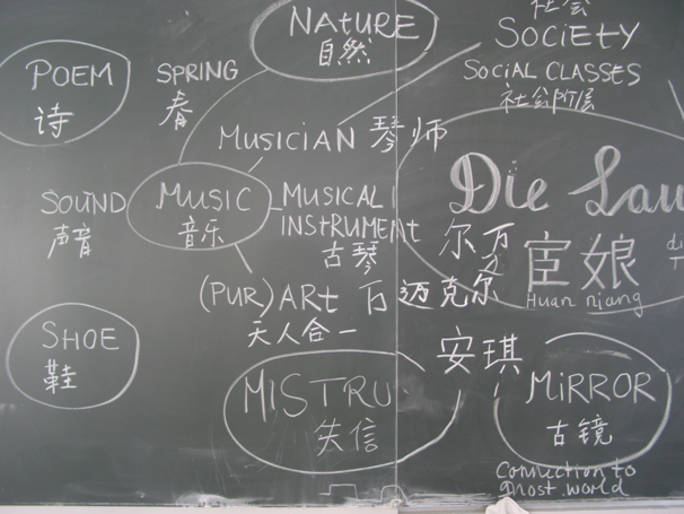 NATURE
自然
社会
SOCIETY
POEM
诗
SPRING
春
SOCIAL CLASSES
社会阶层
MUSICIAN 琴师
Die Lau
SOUND
声音
MUSIC
音乐
MUSICAL
INSTRUMENT
古琴
尔万
宦娘
Huan niang
(PUR)ART
迈克尔
天人合一
SHOE
鞋
安琪
MISTRU
失信
MIRROR
古镜
Connection to
ghost world